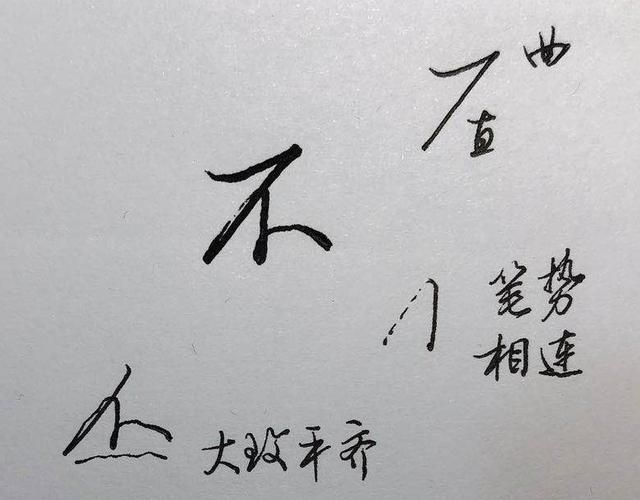 曲
直
不
笔势
相连
大致平齐